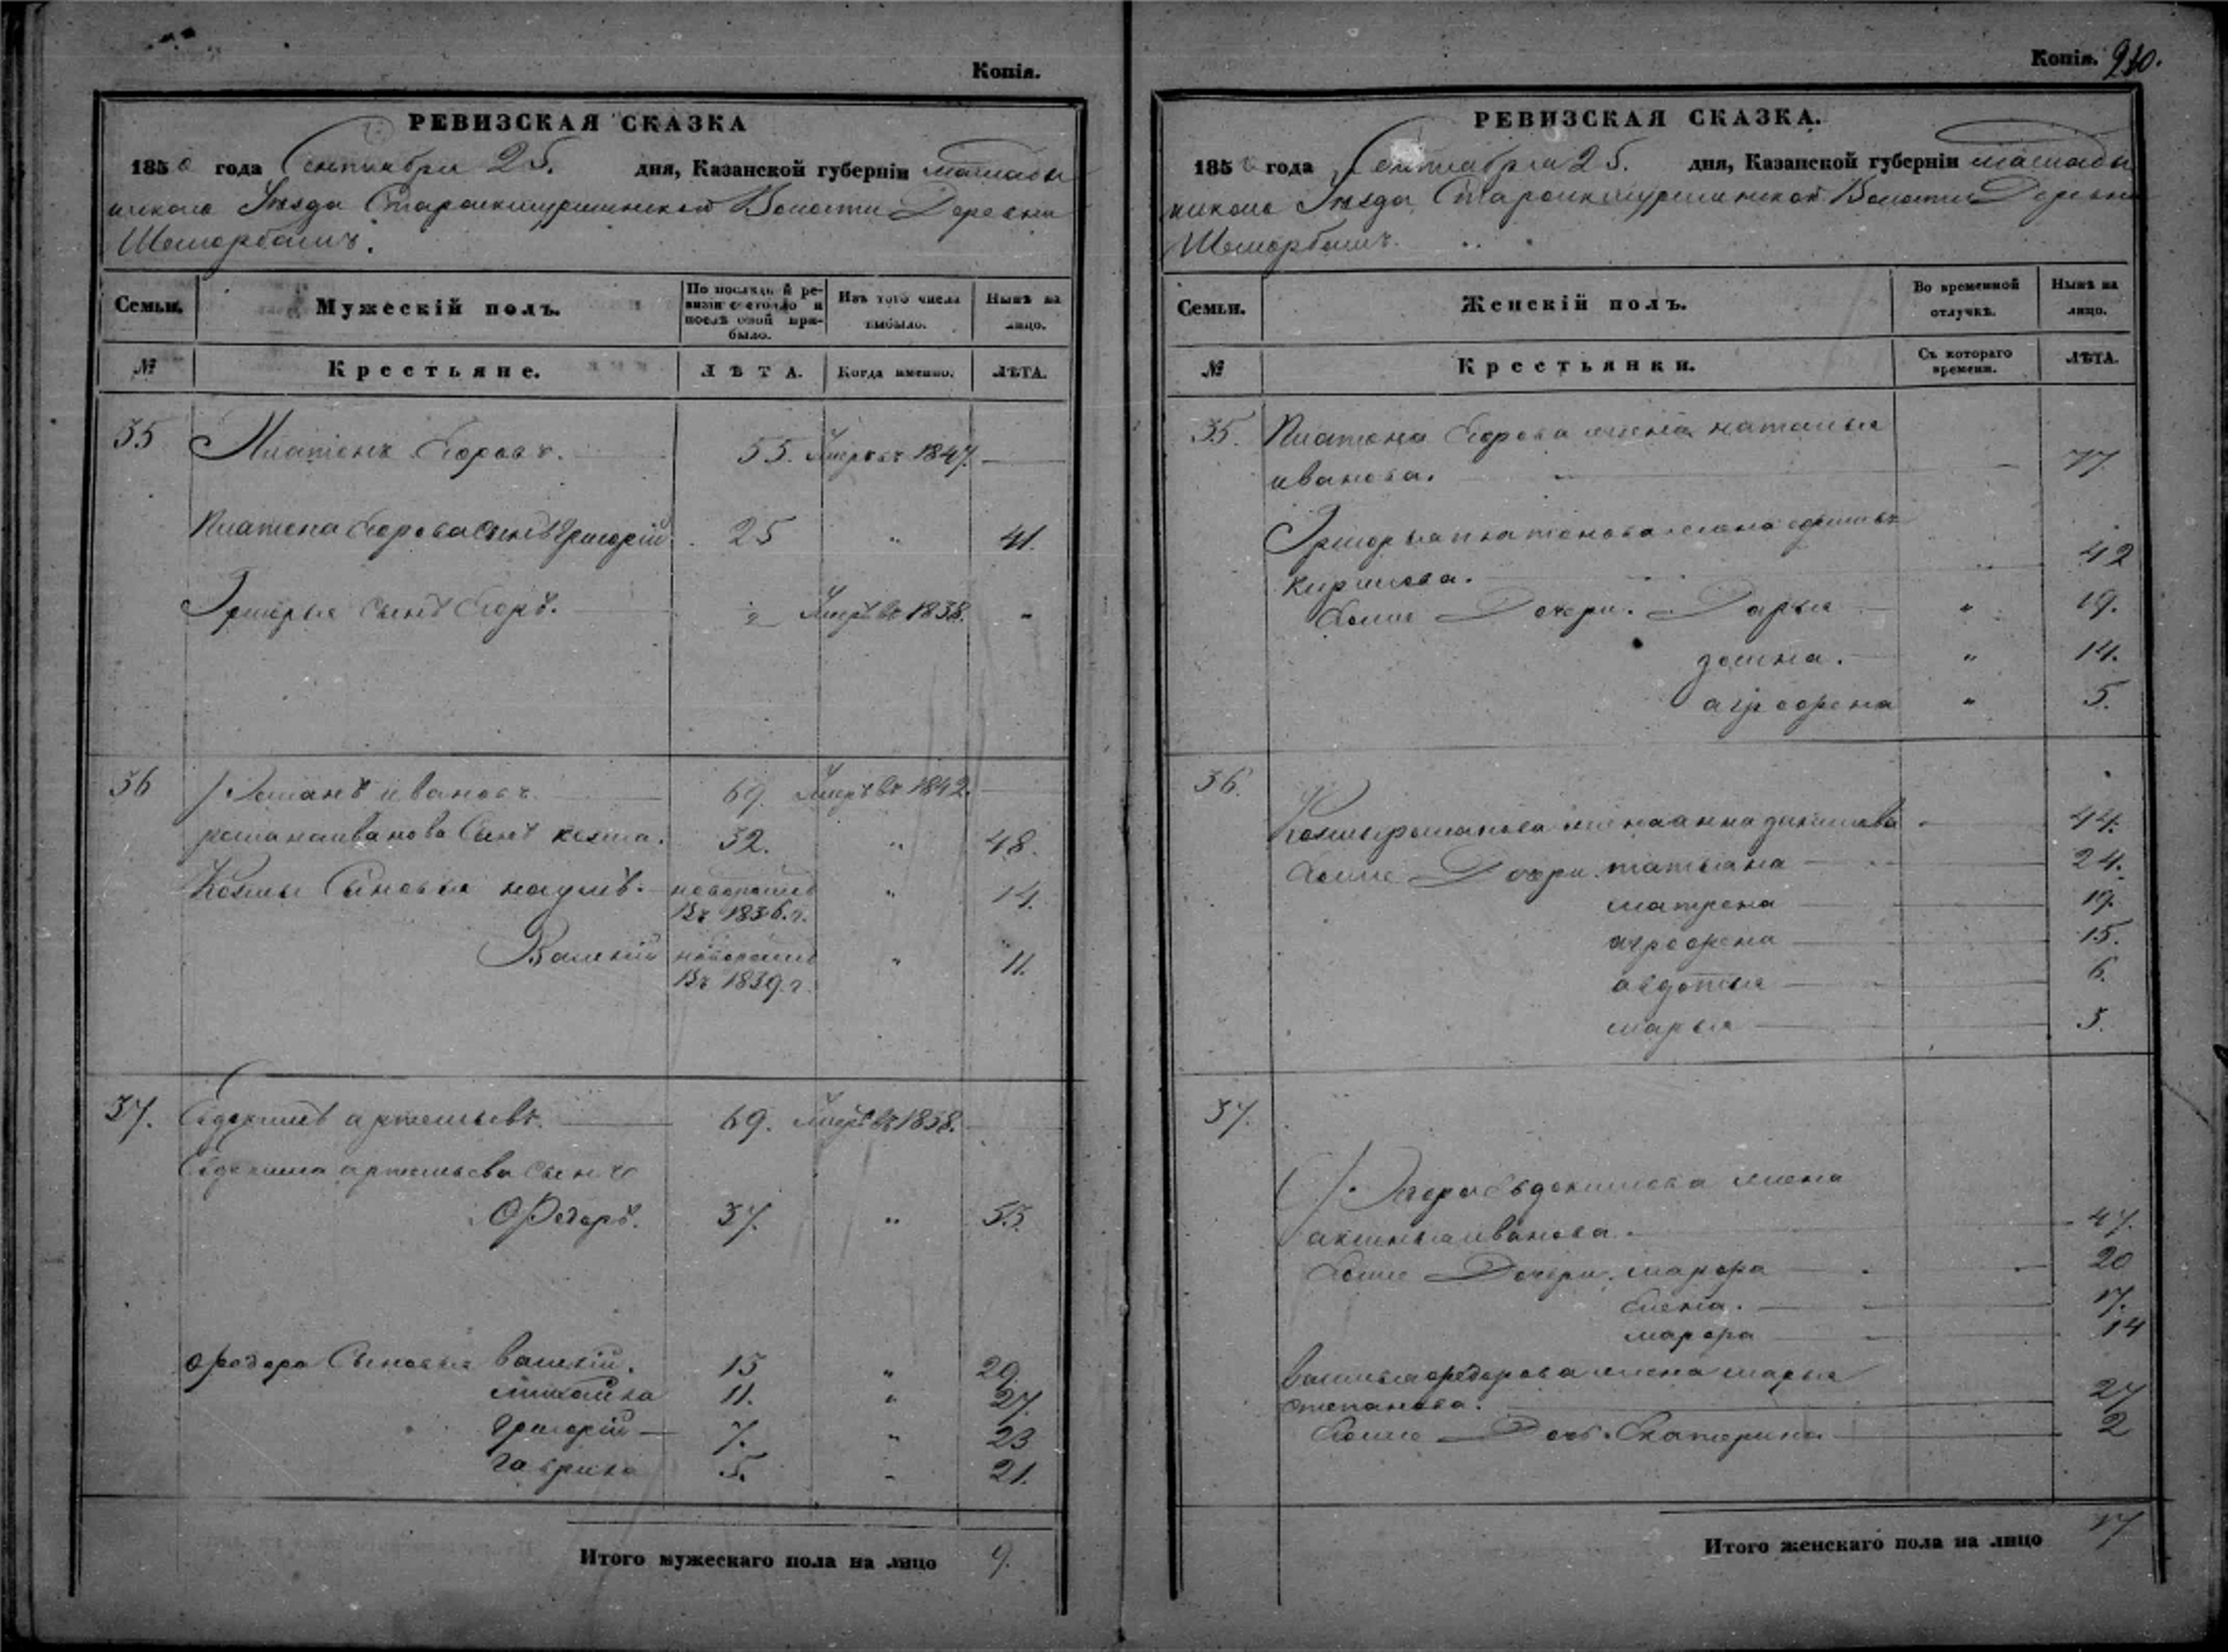 Копія.
РЕВИЗСКАЯ СКАЗКА
1850 года Сентября 25. дня, Казанской губерніи мамады
шскаго Уѣзда Староикшурминской Волости Деревни
Шеморбашъ.
Семьи. Мужескій полъ. По послѣдней ревизіи состояло и послѣ оной прибыло. Изъ того числа выбыло. Нынѣ на лицо.
№ Крестьяне. ЛѢТА. Когда именно. ЛѢТА.
35 Платонъ Егоровъ. 55. Умеръ въ 1847.
Платона Егорова сынъ Григорій 25 " 41.
Григорья сынъ Егоръ. 2 Умеръ въ 1838. "
36 Романъ ивановъ 69. Умеръ въ 1842.
романа иванова сынъ козма. 32. " 48.
Козмы Сыновья наумъ. новорожд " 14.
Въ 1836. г.
Василій новорожд " 11.
Въ 1839. г.
37. Евдокимъ артемьевъ. 69. Умеръ въ 1838.
Евдокима артемьева сынъ
Федоръ. 37. " 53.
Федора Сыновья василій. 13 " 29.
михайла 11. " 27.
григорій 7. " 23
гаврила 5. " 21.
Итого мужескаго пола на лицо 9.
Копія. 210.
РЕВИЗСКАЯ СКАЗКА.
1850 года Сентября 25. дня, Казанской губерніи мамады
шскаго Уѣзда Староикшурминской Волости Деревни
Шеморбашъ.
Семьи. Женскій полъ. Во временной отлучкѣ. Нынѣ на лицо.
№ Крестьянки. Съ котораго времени. ЛѢТА.
35. Платона Егорова жена наталья
иванова. 77
Григорья платонова жена
42
Еяже Дочери. Дарья " 19.
домна. " 14.
агрофена " 5.
36. Козмы романова жена анна 44.
Еяже Дочери татьяна 24.
матрена 19.
агрофена 15.
авдотья 6.
марья 3.
37.
Федора Евдокимова жена
аксинья иванова. 47.
Еяже Дочери. марфа 20
Елена. 17.
марфа 14
василья федорова жена марья
степанова. 27
Еяже Дочь. Екатерина 2
Итого женскаго пола на лицо 17